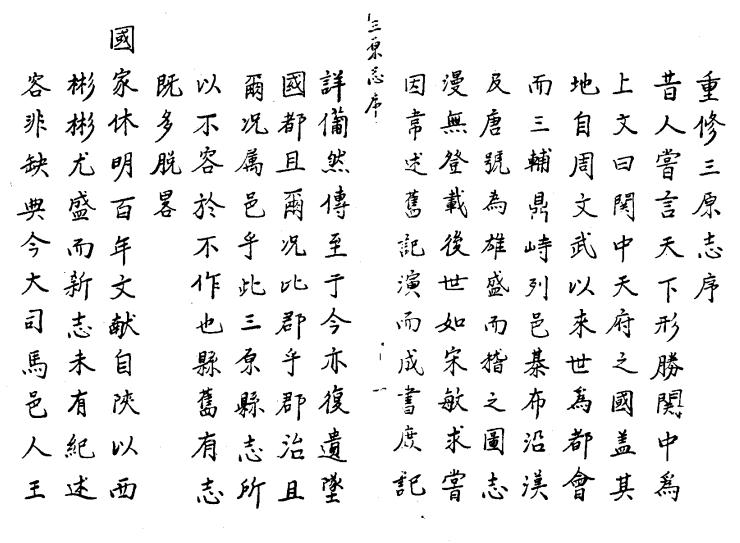 重修三原志序
昔人嘗言天下形勝関中為
上文曰関中天府之國盖其
地自周文武以来世為都會
而三輔鼎峙列邑棊布沿漢
及唐號為雄盛而稽之圖志
漫無登載後世如宋敏求嘗
因常述舊記演而成書庻記
三原志序
一
詳僃然傳至于今亦復遺墜
國都且爾况比郡乎郡治且
爾况属邑乎此三原縣志所
以不容於不作也縣舊有志
既多脱畧
國家休明百年文献自陝以西
彬彬尤盛而新志未有紀述
容非缺典今大司馬邑人王